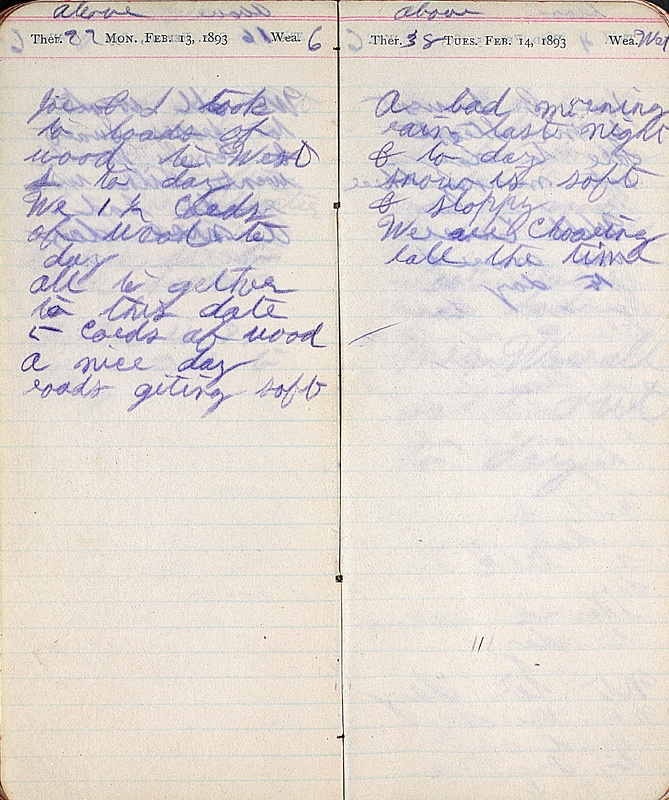 above
Ther. 27 Mon. Feb. 13, 1893 Wea. 6
Joe took
to loads of
wood to West
& to day
We 1 ½ Cords
of wood to
day
all to gether
to this date
5 Cords of wood
a nice day
roads geting soft
above
Ther. 38 Tues. Feb. 14, 1893 Wea. Wet
A bad morning
rain last night
& to day
snow is soft
& sloppy
We are Choaring
all the time
to day